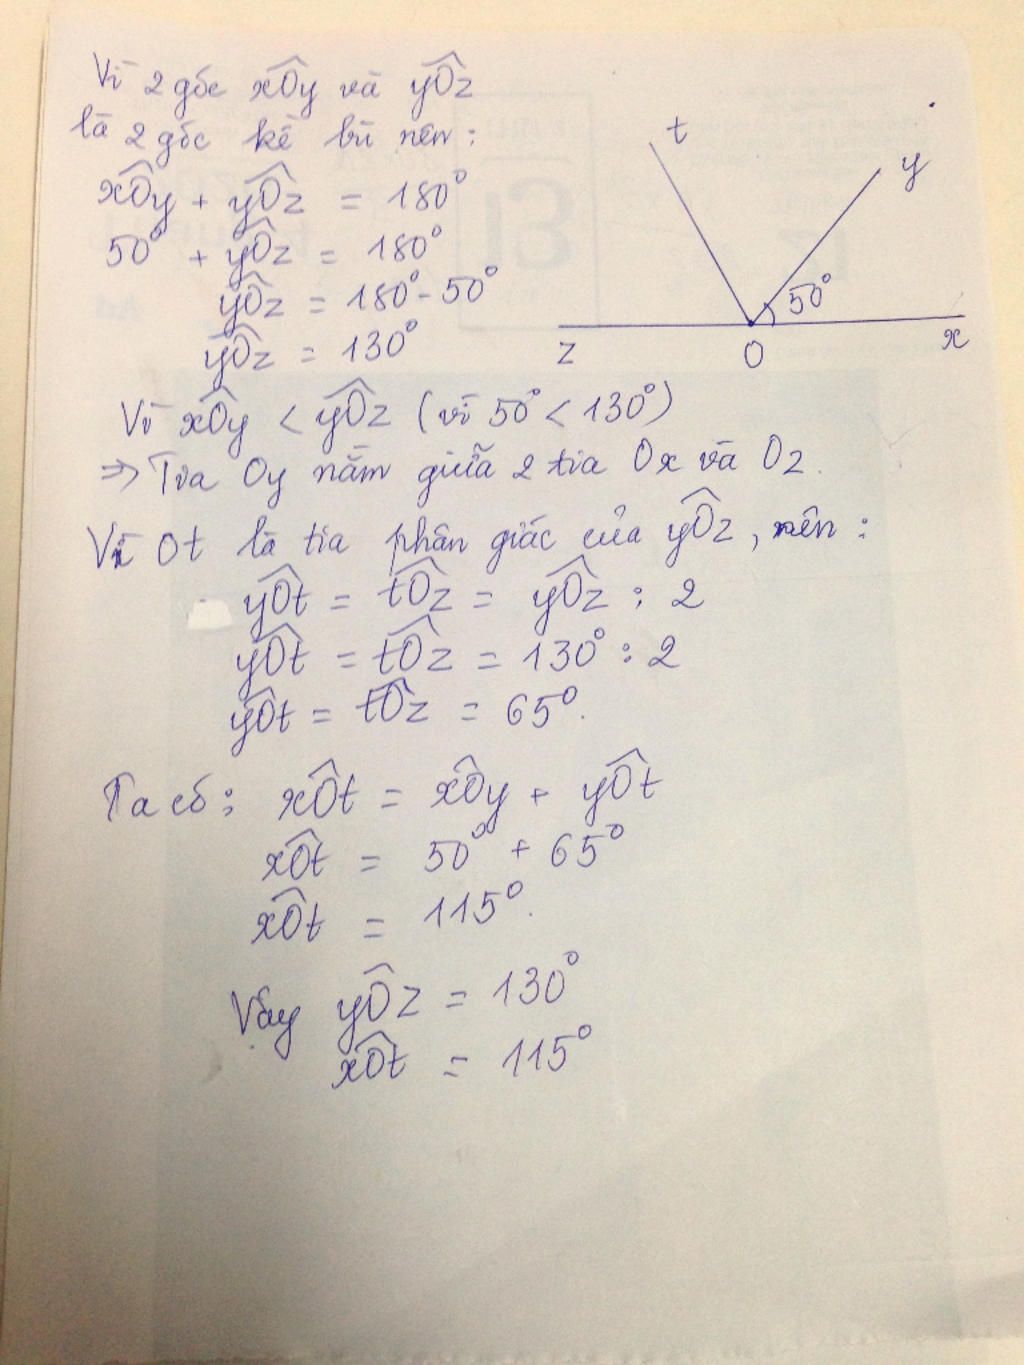 Vì 2 góc xOy và yOz
là 2 góc kề bù nên:
xOy + yOz = 180°
50° + yOz = 180°
yOz = 180° - 50°
yOz = 130°
t
y
50°
z
O
x
Vì xOy < yOz (vì 50° < 130°)
=> Tia Oy nằm giữa 2 tia Ox và Oz.
Vì Ot là tia phân giác của yOz, nên:
yOt = tOz = yOz : 2
yOt = tOz = 130° : 2
yOt = tOz = 65°.
Ta có: xOt = xOy + yOt
xOt = 50° + 65°
xOt = 115°.
Vậy yOz = 130°
xOt = 115°